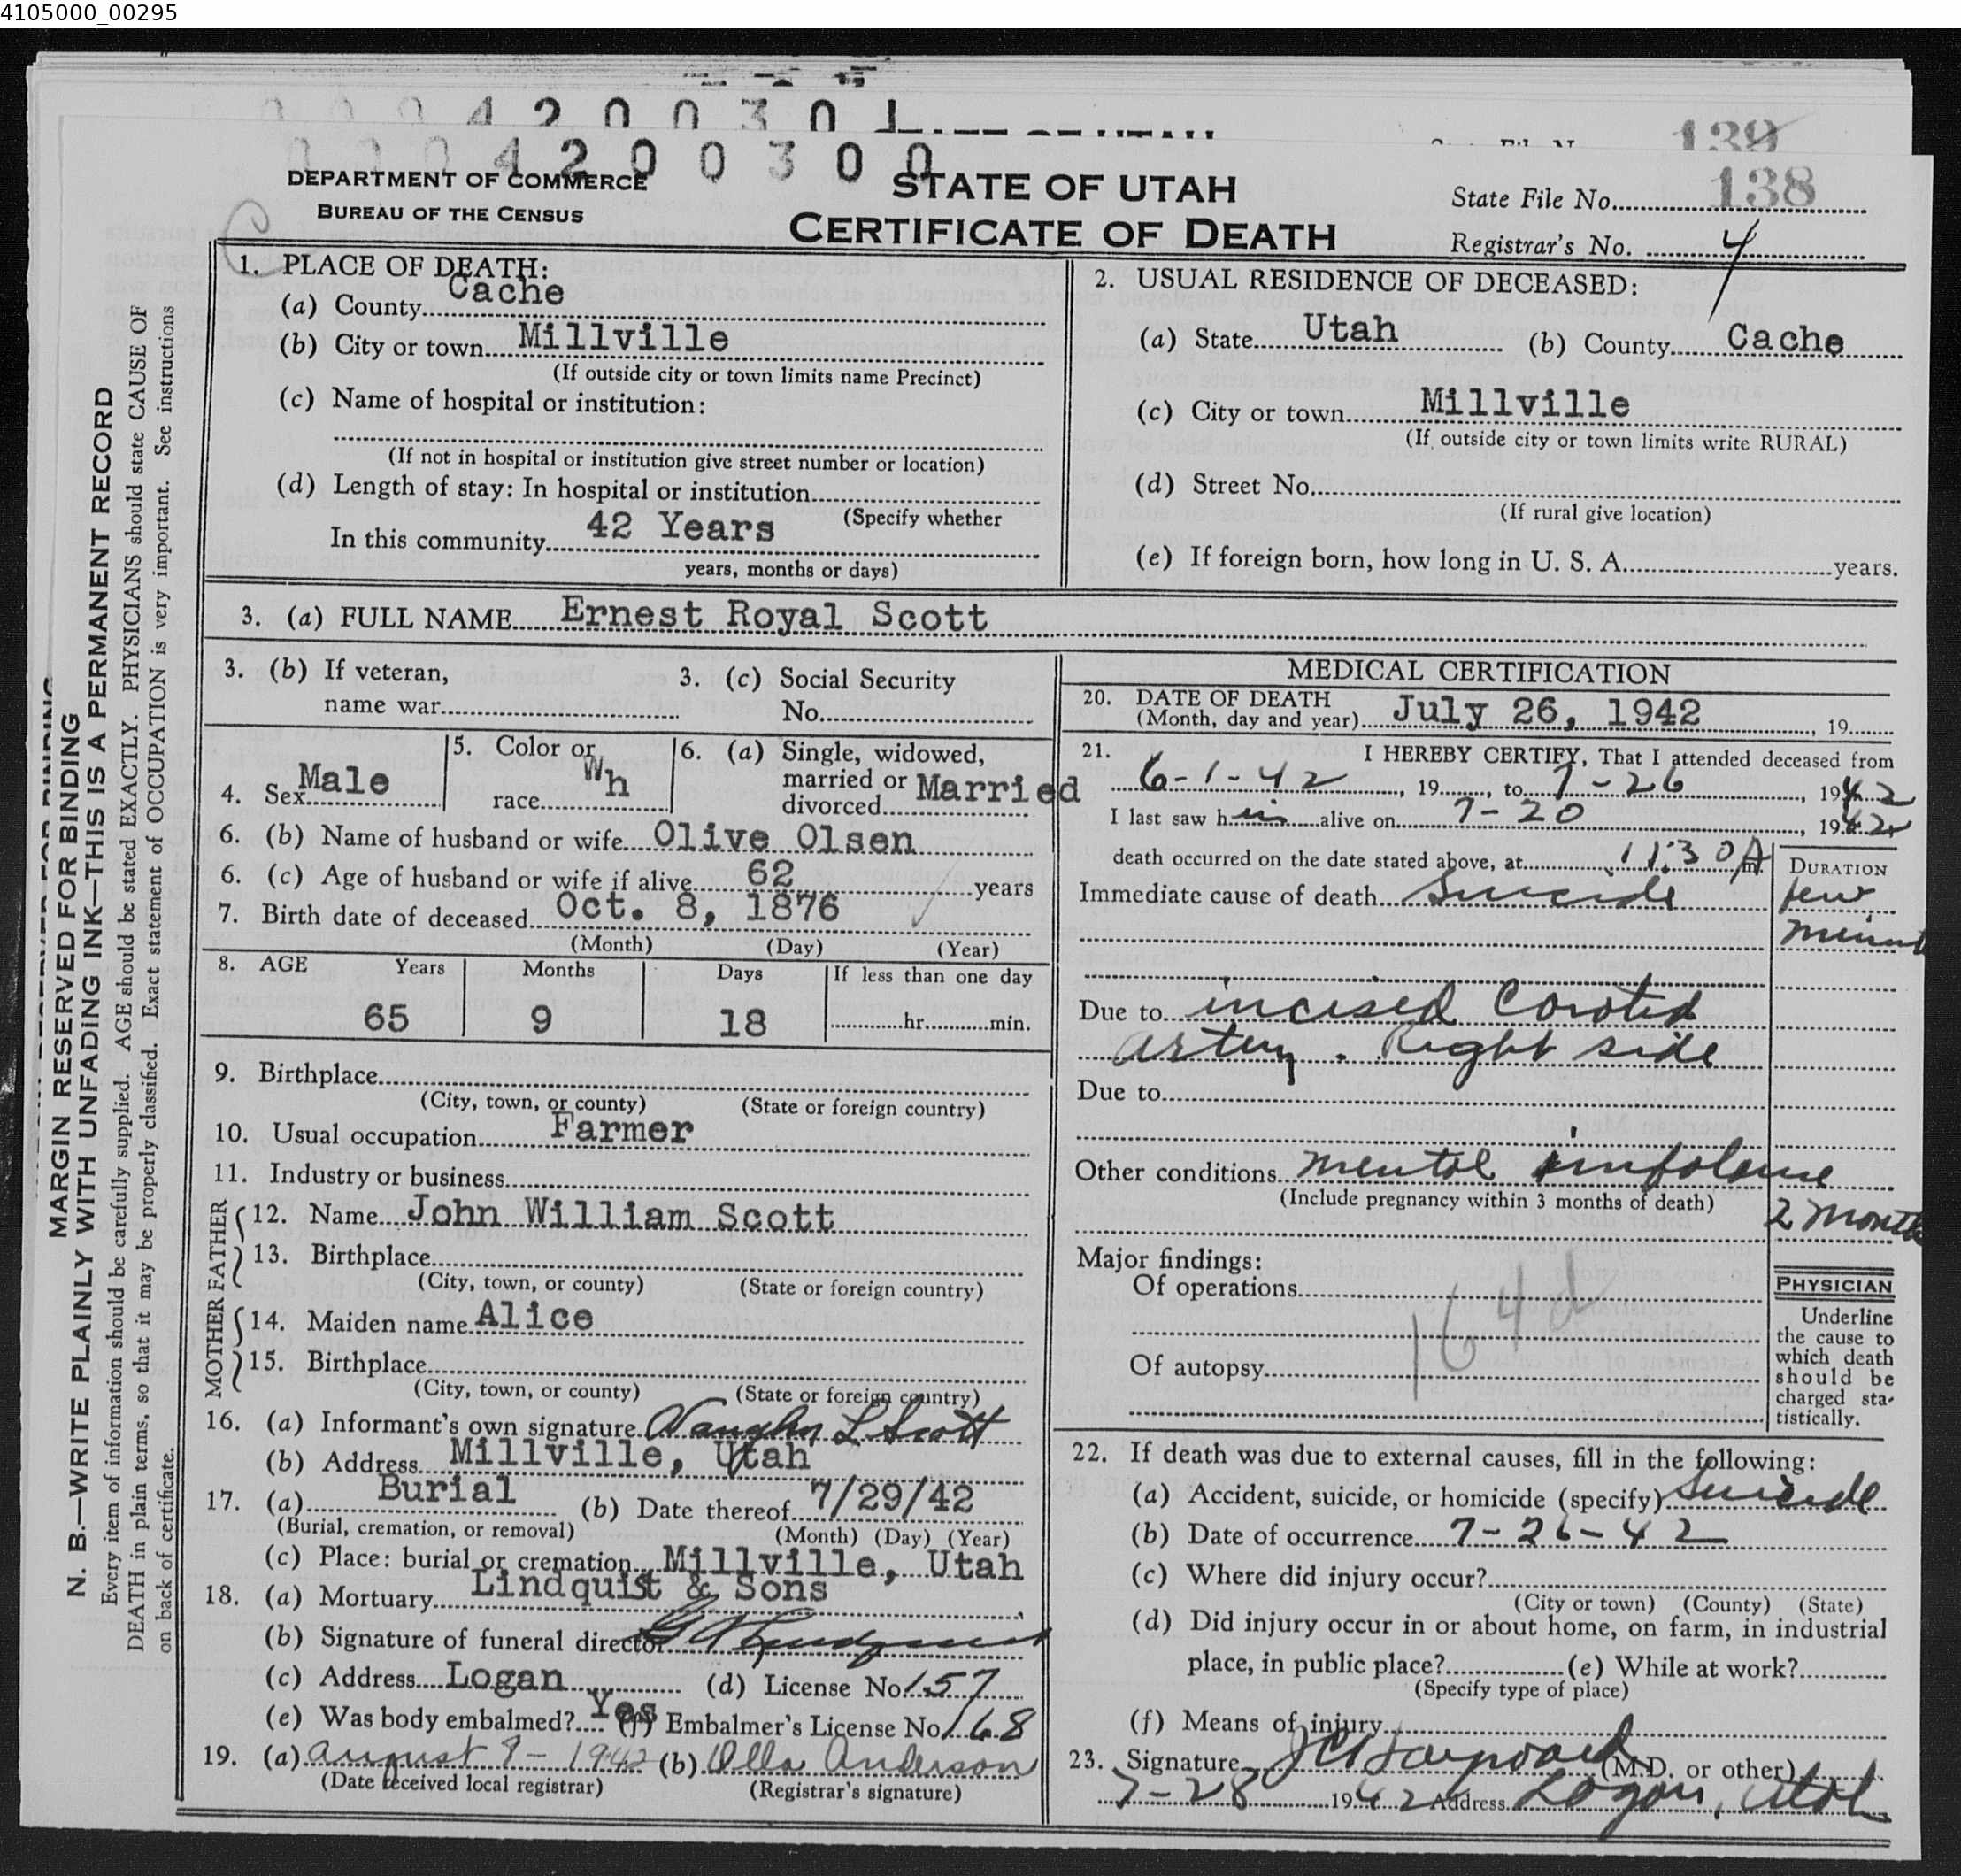 4105000_00295
4 2 0 0 3 0 1
139
4 2 0 0 3 0 0
DEPARTMENT OF COMMERCE
BUREAU OF THE CENSUS
STATE OF UTAH
CERTIFICATE OF DEATH
State File No. 138
Registrar's No. 4
MARGIN RESERVED FOR BINDING
N. B.—WRITE PLAINLY WITH UNFADING INK—THIS IS A PERMANENT RECORD
Every item of information should be carefully supplied. AGE should be stated EXACTLY. PHYSICIANS should state CAUSE OF
DEATH in plain terms, so that it may be properly classified. Exact statement of OCCUPATION is very important. See instructions
on back of certificate.
1. PLACE OF DEATH:
(a) County Cache
(b) City or town Millville
(If outside city or town limits name Precinct)
(c) Name of hospital or institution:
(If not in hospital or institution give street number or location)
(d) Length of stay: In hospital or institution
(Specify whether
In this community 42 Years
years, months or days)
2. USUAL RESIDENCE OF DECEASED:
(a) State Utah (b) County Cache
(c) City or town Millville
(If outside city or town limits write RURAL)
(d) Street No.
(If rural give location)
(e) If foreign born, how long in U. S. A. years.
3. (a) FULL NAME Ernest Royal Scott
3. (b) If veteran,
name war
3. (c) Social Security
No.
4. Sex Male
5. Color or
race Wh
6. (a) Single, widowed,
married or
divorced Married
6. (b) Name of husband or wife Olive Olsen
6. (c) Age of husband or wife if alive 62 years
7. Birth date of deceased Oct. 8, 1876
(Month) (Day) (Year)
8. AGE Years Months Days If less than one day
65 9 18 hr. min.
9. Birthplace
(City, town, or county) (State or foreign country)
10. Usual occupation Farmer
11. Industry or business
FATHER
12. Name John William Scott
13. Birthplace
(City, town, or county) (State or foreign country)
MOTHER
14. Maiden name Alice
15. Birthplace
(City, town, or county) (State or foreign country)
16. (a) Informant's own signature Vaughn L Scott
(b) Address Millville, Utah
17. (a) Burial (b) Date thereof 7/29/42
(Burial, cremation, or removal) (Month) (Day) (Year)
(c) Place: burial or cremation Millville, Utah
18. (a) Mortuary Lindquist & Sons
(b) Signature of funeral director
(c) Address Logan (d) License No. 157
(e) Was body embalmed? Yes (f) Embalmer's License No. 168
19. (a) August 9 - 1942 (b) Olla Anderson
(Date received local registrar) (Registrar's signature)
MEDICAL CERTIFICATION
20. DATE OF DEATH
(Month, day and year) July 26, 1942, 19
21. I HEREBY CERTIFY, That I attended deceased from
6-1-42, 19, to 7-26, 1942
I last saw him alive on 7-20, 1942
death occurred on the date stated above, at 11:30 A m.
DURATION
Immediate cause of death suicide few
minut
Due to incised Corotid
artery. Right side
Due to
Other conditions mental
(Include pregnancy within 3 months of death)
2 months
Major findings:
Of operations
164d
Of autopsy
PHYSICIAN
Underline
the cause to
which death
should be
charged sta-
tistically.
22. If death was due to external causes, fill in the following:
(a) Accident, suicide, or homicide (specify) Suicide
(b) Date of occurrence 7-26-42
(c) Where did injury occur?
(City or town) (County) (State)
(d) Did injury occur in or about home, on farm, in industrial
place, in public place? (e) While at work?
(Specify type of place)
(f) Means of injury
23. Signature J C Hayward (M.D. or other)
7-28 1942 Address Logan, Utah